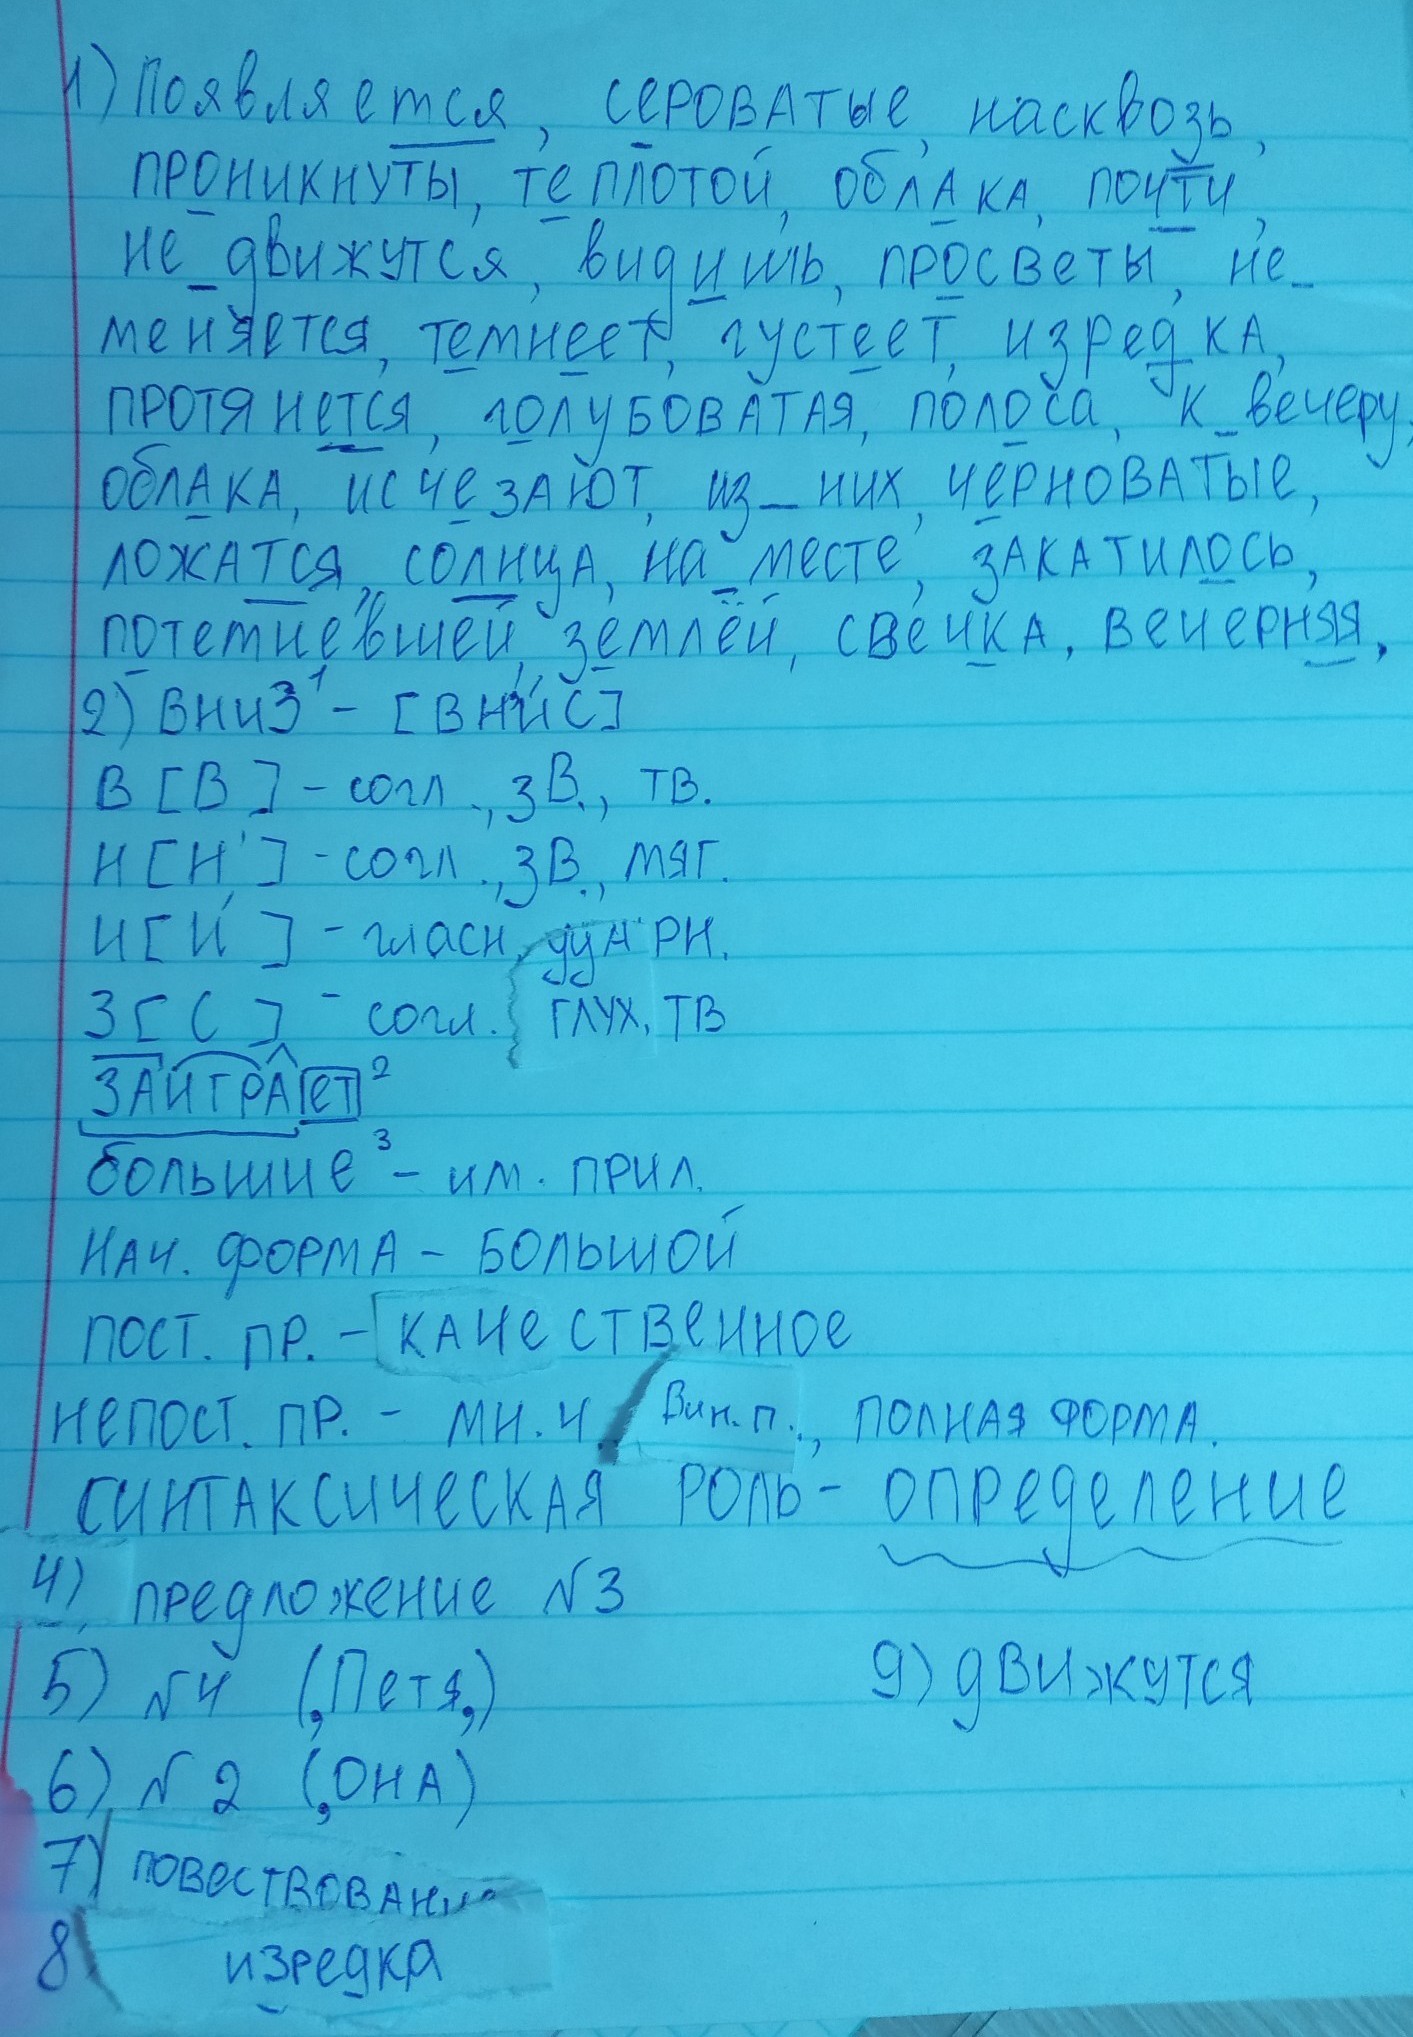 1) Появляется, сероватые, насквозь,
проникнуты, теплотой, облака, почти,
не движутся, видишь, просветы, не
меняется, темнеет, густеет, изредка,
протянется, голубоватая, полоса, к вечеру,
облака, исчезают, из них, черноватые,
ложатся, солнца, на месте, закатилось,
потемневшей, землёй, свечка, вечерняя.
2) вниз¹ - [вн'ис]
в [в] - согл., зв., тв.
н [н'] - согл., зв., мяг.
и [и́] - гласн, ударн.
з [с] - согл. глух, тв
заиграет²
большие³ - им. прил.
нач. форма - большой
пост. пр. - качественное
непост. пр. - мн. ч. Вин. п., полная форма.
синтаксическая роль - определение
4) предложение №3
5) №4 (,Петя,)
9) движутся
6) №2 (,она)
7) повествовани
8 изредка